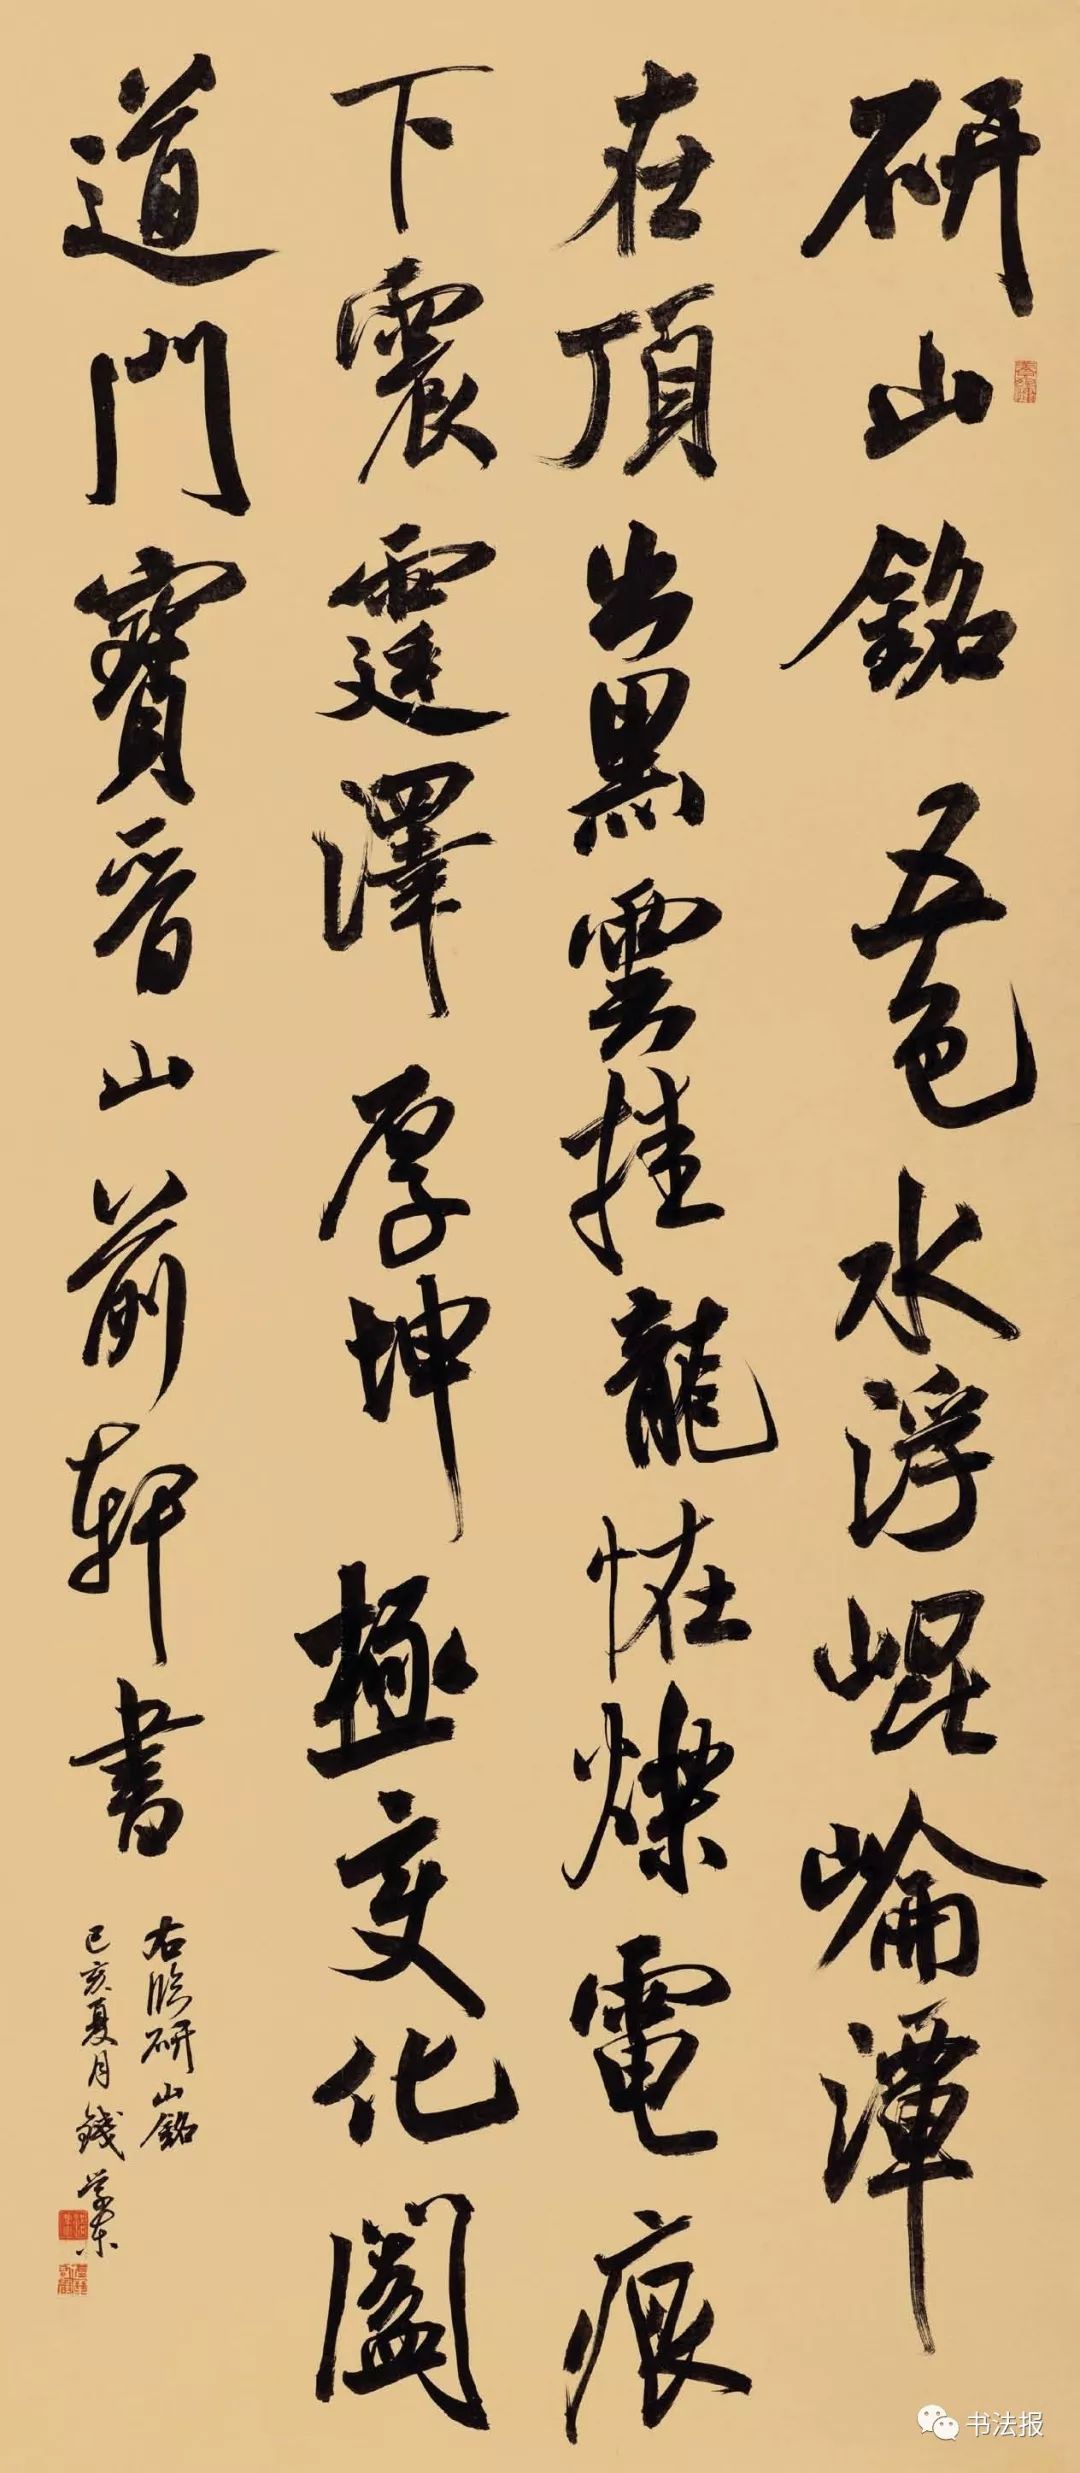 研山銘 五色水浮崐崘潭
在頂出黑雲挂龍怪爍電痕
下震霆澤厚坤極变化闔
道門寶晉山前軒書
右臨研山銘
己亥夏月錢崇東
书法报